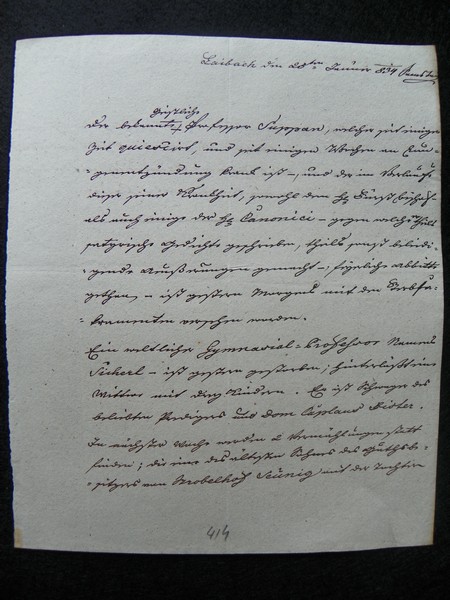 Laibach den 28ten Januar 834 Samstag
Geistliche
Der bekannte Professor Suppan, welcher seit einiger
Zeit quieszirt, und seit einigen Wochen an Lun-
genentzündung krank ist –, und der im Verlaufe
dieser seiner Krankheit, sowohl dem H. Fürst Bischof
als auch einige der H. Canonici – gegen welche theils
satyrische Gedichte geschrieben, theils sonst beleidi-
gende Äußerungen gemacht –, förmliche Abbitte
gethan, – ist gestern Morgens mit den Sterbsa-
kramenten versehen worden.
Ein weltlicher Gymnasial-Professor Namens
Sicherl – ist gestern gestorben; hinterläßt eine
Witwe mit drey Kindern. Er ist Schwager des
beliebten Predigers und Dom Caplans
In nächster Woche werden 2 Vermählungen statt
finden; die eine des ältesten Sohnes des Guthsbe-
sitzers von Strobelhof Seünig mit der Tochter
414